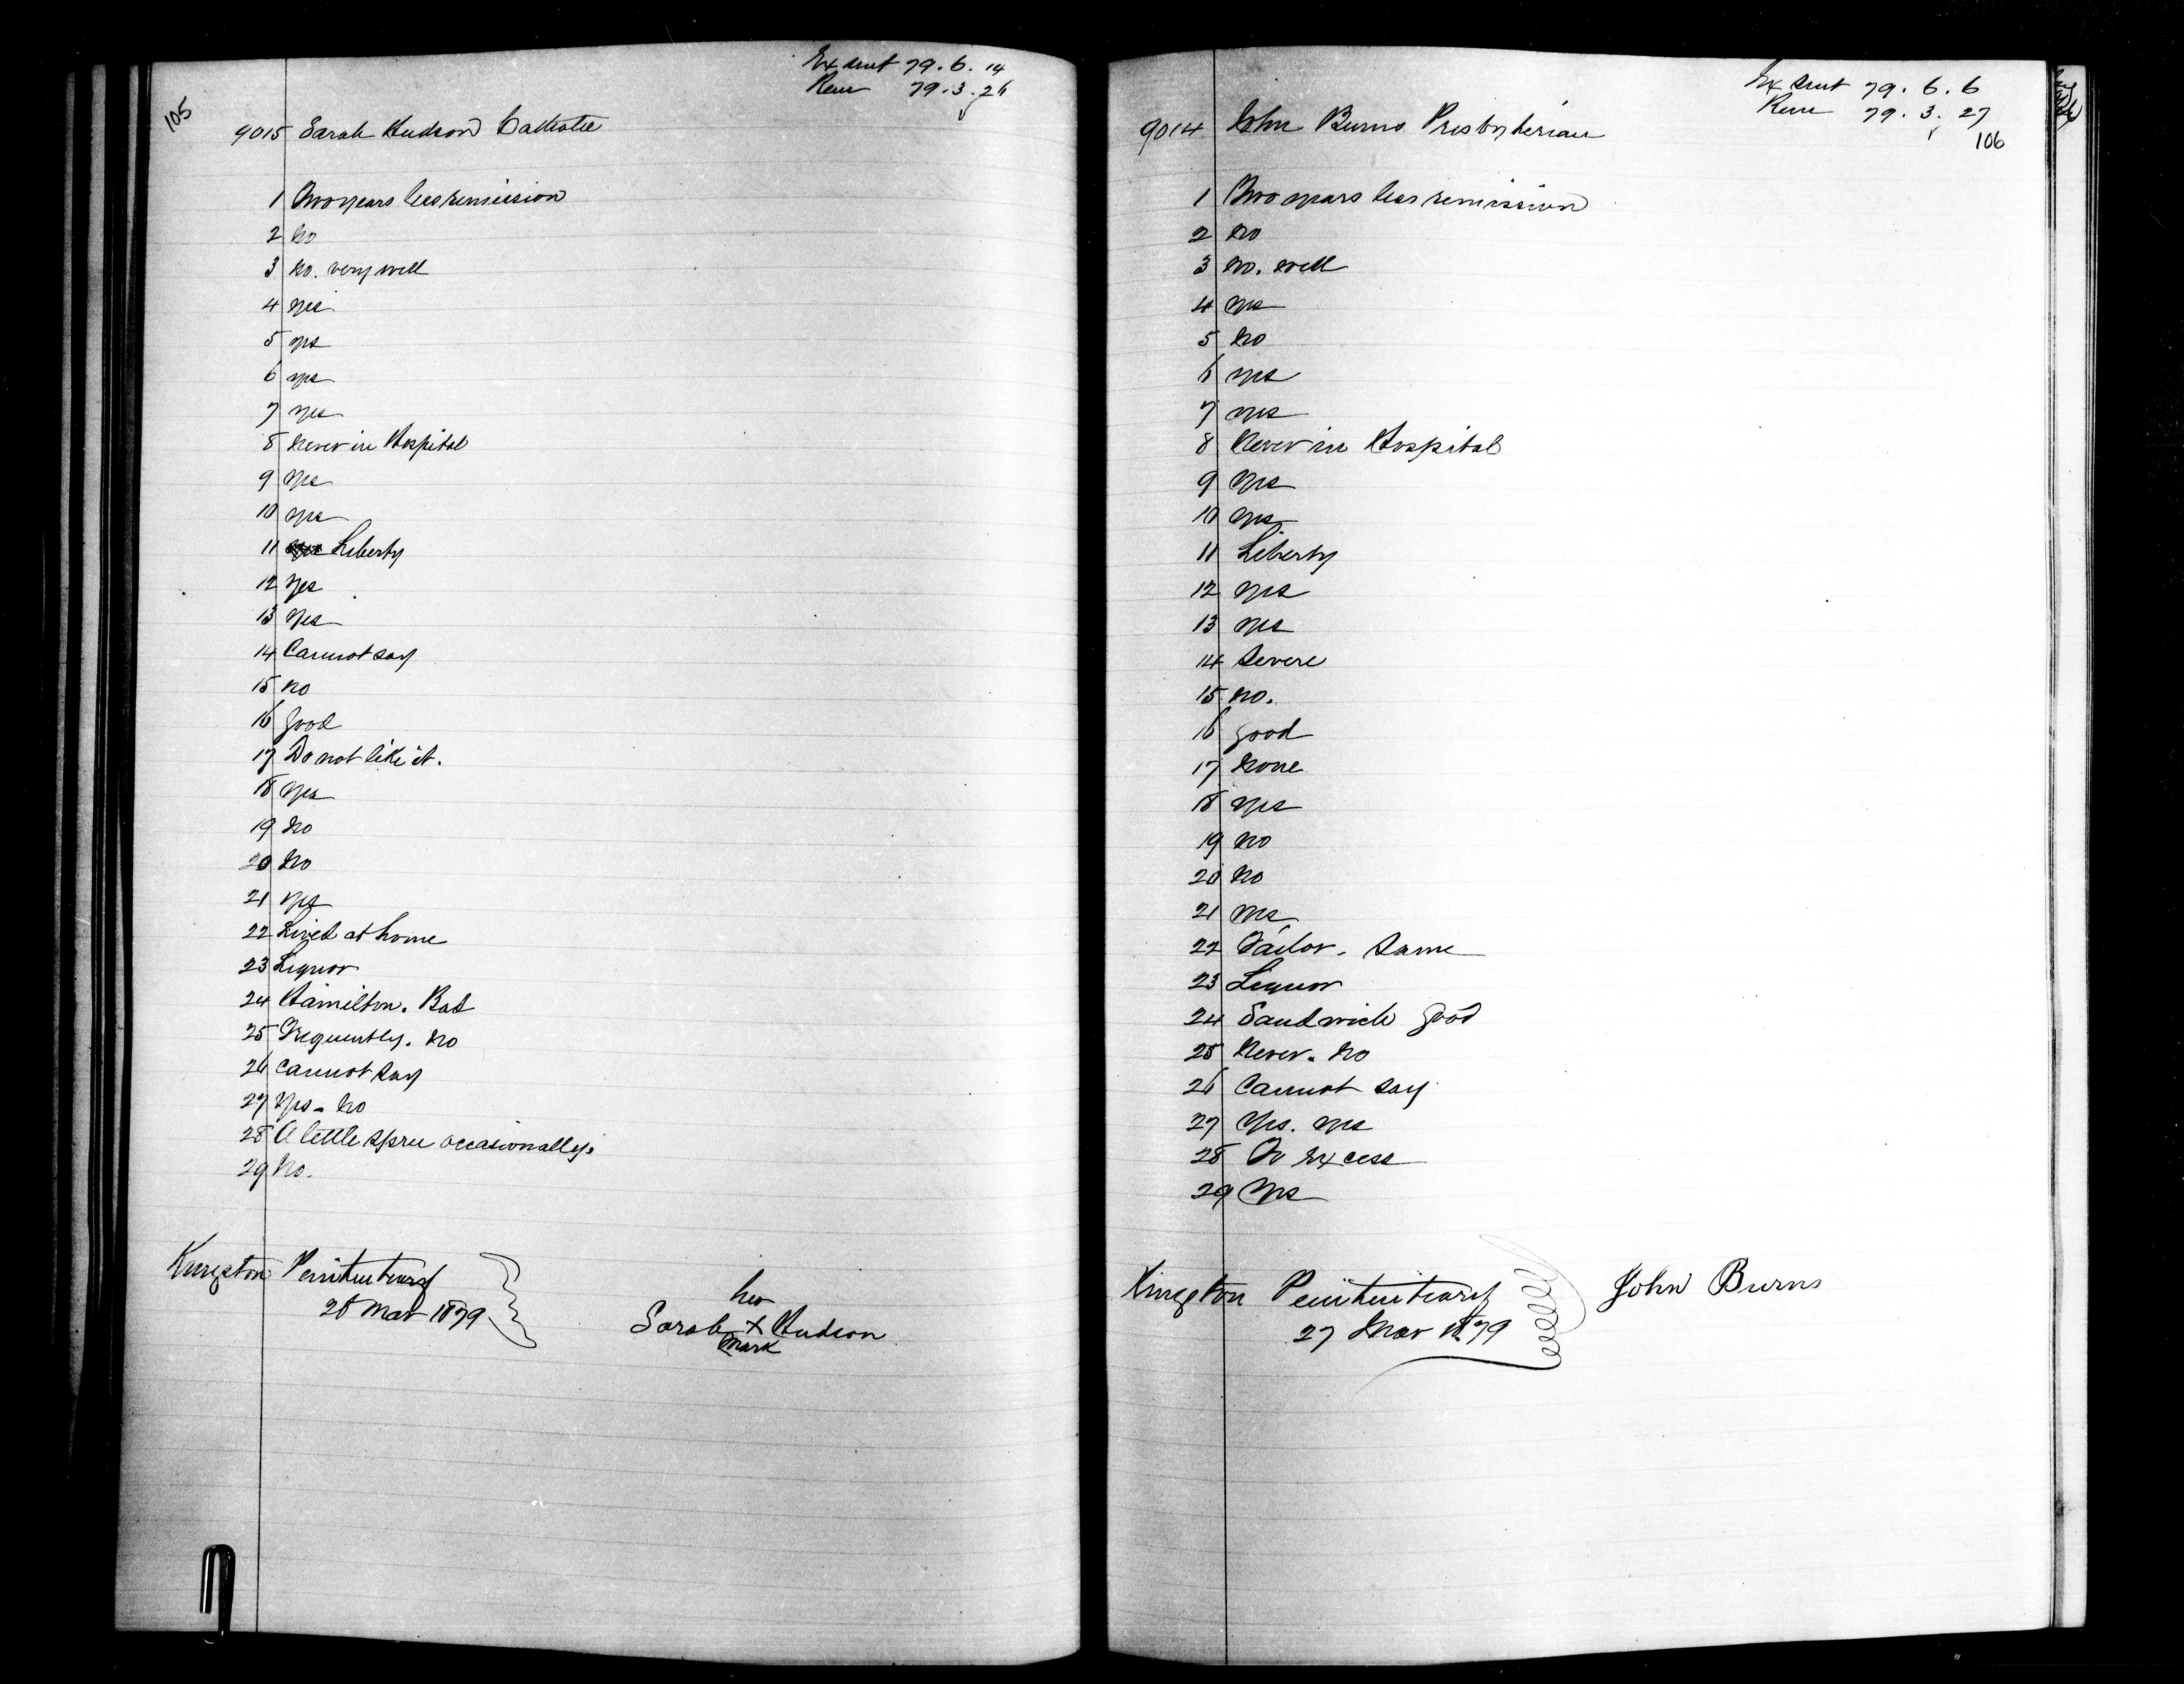 105
Ex sent 79. 6. 14
Rem 79. 3. 26
9015 Sarah Hudson Catholic
1 Two years less remission
2 No
3 No. very well
4 yes
5 yes
6 yes
7 yes
8 Never in Hospital
9 Yes
10 yes
11 Liberty
12 Yes
13 Yes
14 Cannot say
15 no
16 good
17 Do not like it.
18 Yes
19 No
20 No
21 yes
22 Lived at home
23 Liquor
24 Hamilton. Bad
25 Frequently. No
26 Cannot say
27 Yes - No
28 A little spree occasionally.
29 No.
Kingston Penitentiary
28 Mar 1879
her
Sarah X Hudson
Mark
Ex sent 79. 6. 6
Rem 79. 3. 27
106
9014 John Burns Presbyterian
1 Two years less remission
2 No
3 No. well
4 yes
5 No
6 yes
7 yes
8 Never in Hospital
9 Yes
10 yes
11 Liberty
12 yes
13 yes
14 Severe
15 no.
16 good
17 None
18 yes
19 No
20 No
21 yes
22 Tailor. Same
23 Liquor
24 Sandwich good
25 Never. No
26 Cannot say
27 Yes. yes
28 To Excess
29 Yes
Kingston Penitentiary
27 Mar 1879
John Burns